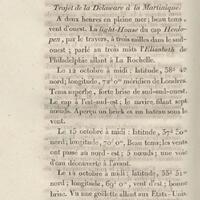 Trajet de la Delaware à la Martinique.
A deux heures en pleine mer; beau tems,
vent d'ouest. La light-House du cap Henlo-
pen, par le travers, à trois milles dans le sud-
ouest; parlé au trois mâts l'Elisabeth de
Philadelphie allant à La Rochelle.
Le 12 octobre à midi: latitude, 38° 4'
nord; longitude, 72° 0'' méridien de Londres.
Tems superbe, forte brise de sud-sud-ouest.
Le cap à l'est-sud-est; le navire filant sept
nœuds. Aperçu un brick et un bateau sous le
vent.
Le 13 octobre à midi: latitude, 37° 50'
nord; longitude, 70° 0'. Beau tems; les vents
ont passé au nord-est; 5 nœuds; une voie
d'eau découverte à l'avant.
Le 14 octobre à midi: latitude, 35° 51'
nord; longitude, 69° 0', vent d'est; bonne
brise. Vu une goëlette allant aux États-Unis